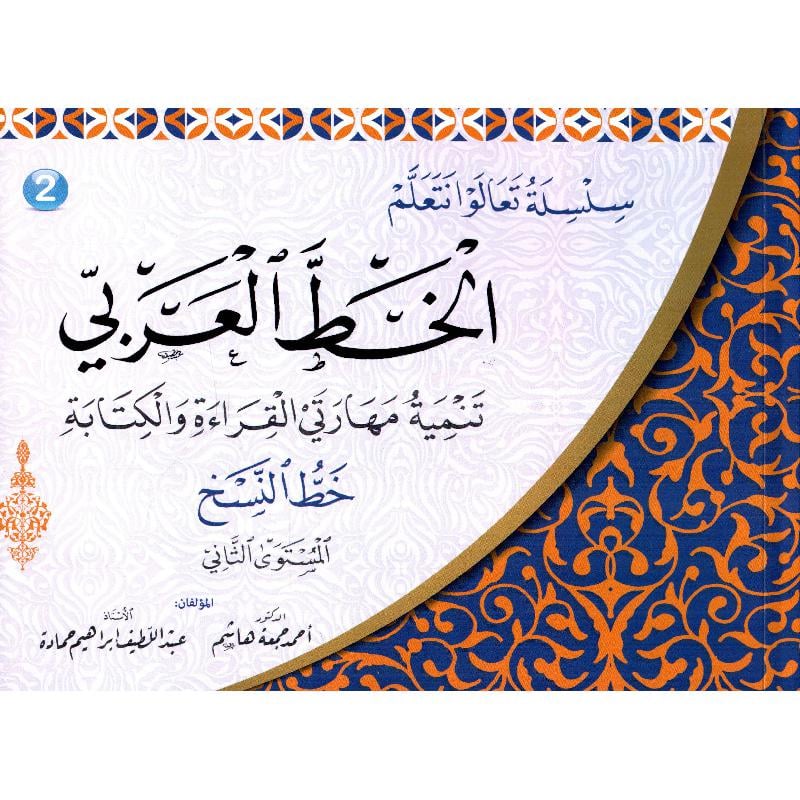 2
سِلْسِلَةُ تَعَالَوْا نَتَعَلَّمْ
الْخَطَّ الْعَرَبِيّ
تَنْمِيَةُ مَهَارَتَيِ الْقِرَاءَةِ وَالْكِتَابَةِ
خَطُّ النَّسْخِ
الْمُسْتَوَى الثَّانِي
المؤلفان:
الدكتور
أحمد جمعة هاشم
الأستاذ
عبد اللطيف إبراهيم حمادة